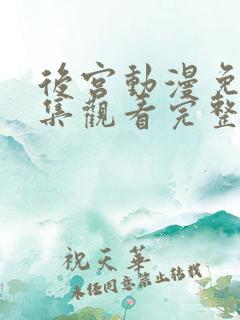 後宮動漫免
集觀看完整
祝天華
未经同意禁止转载